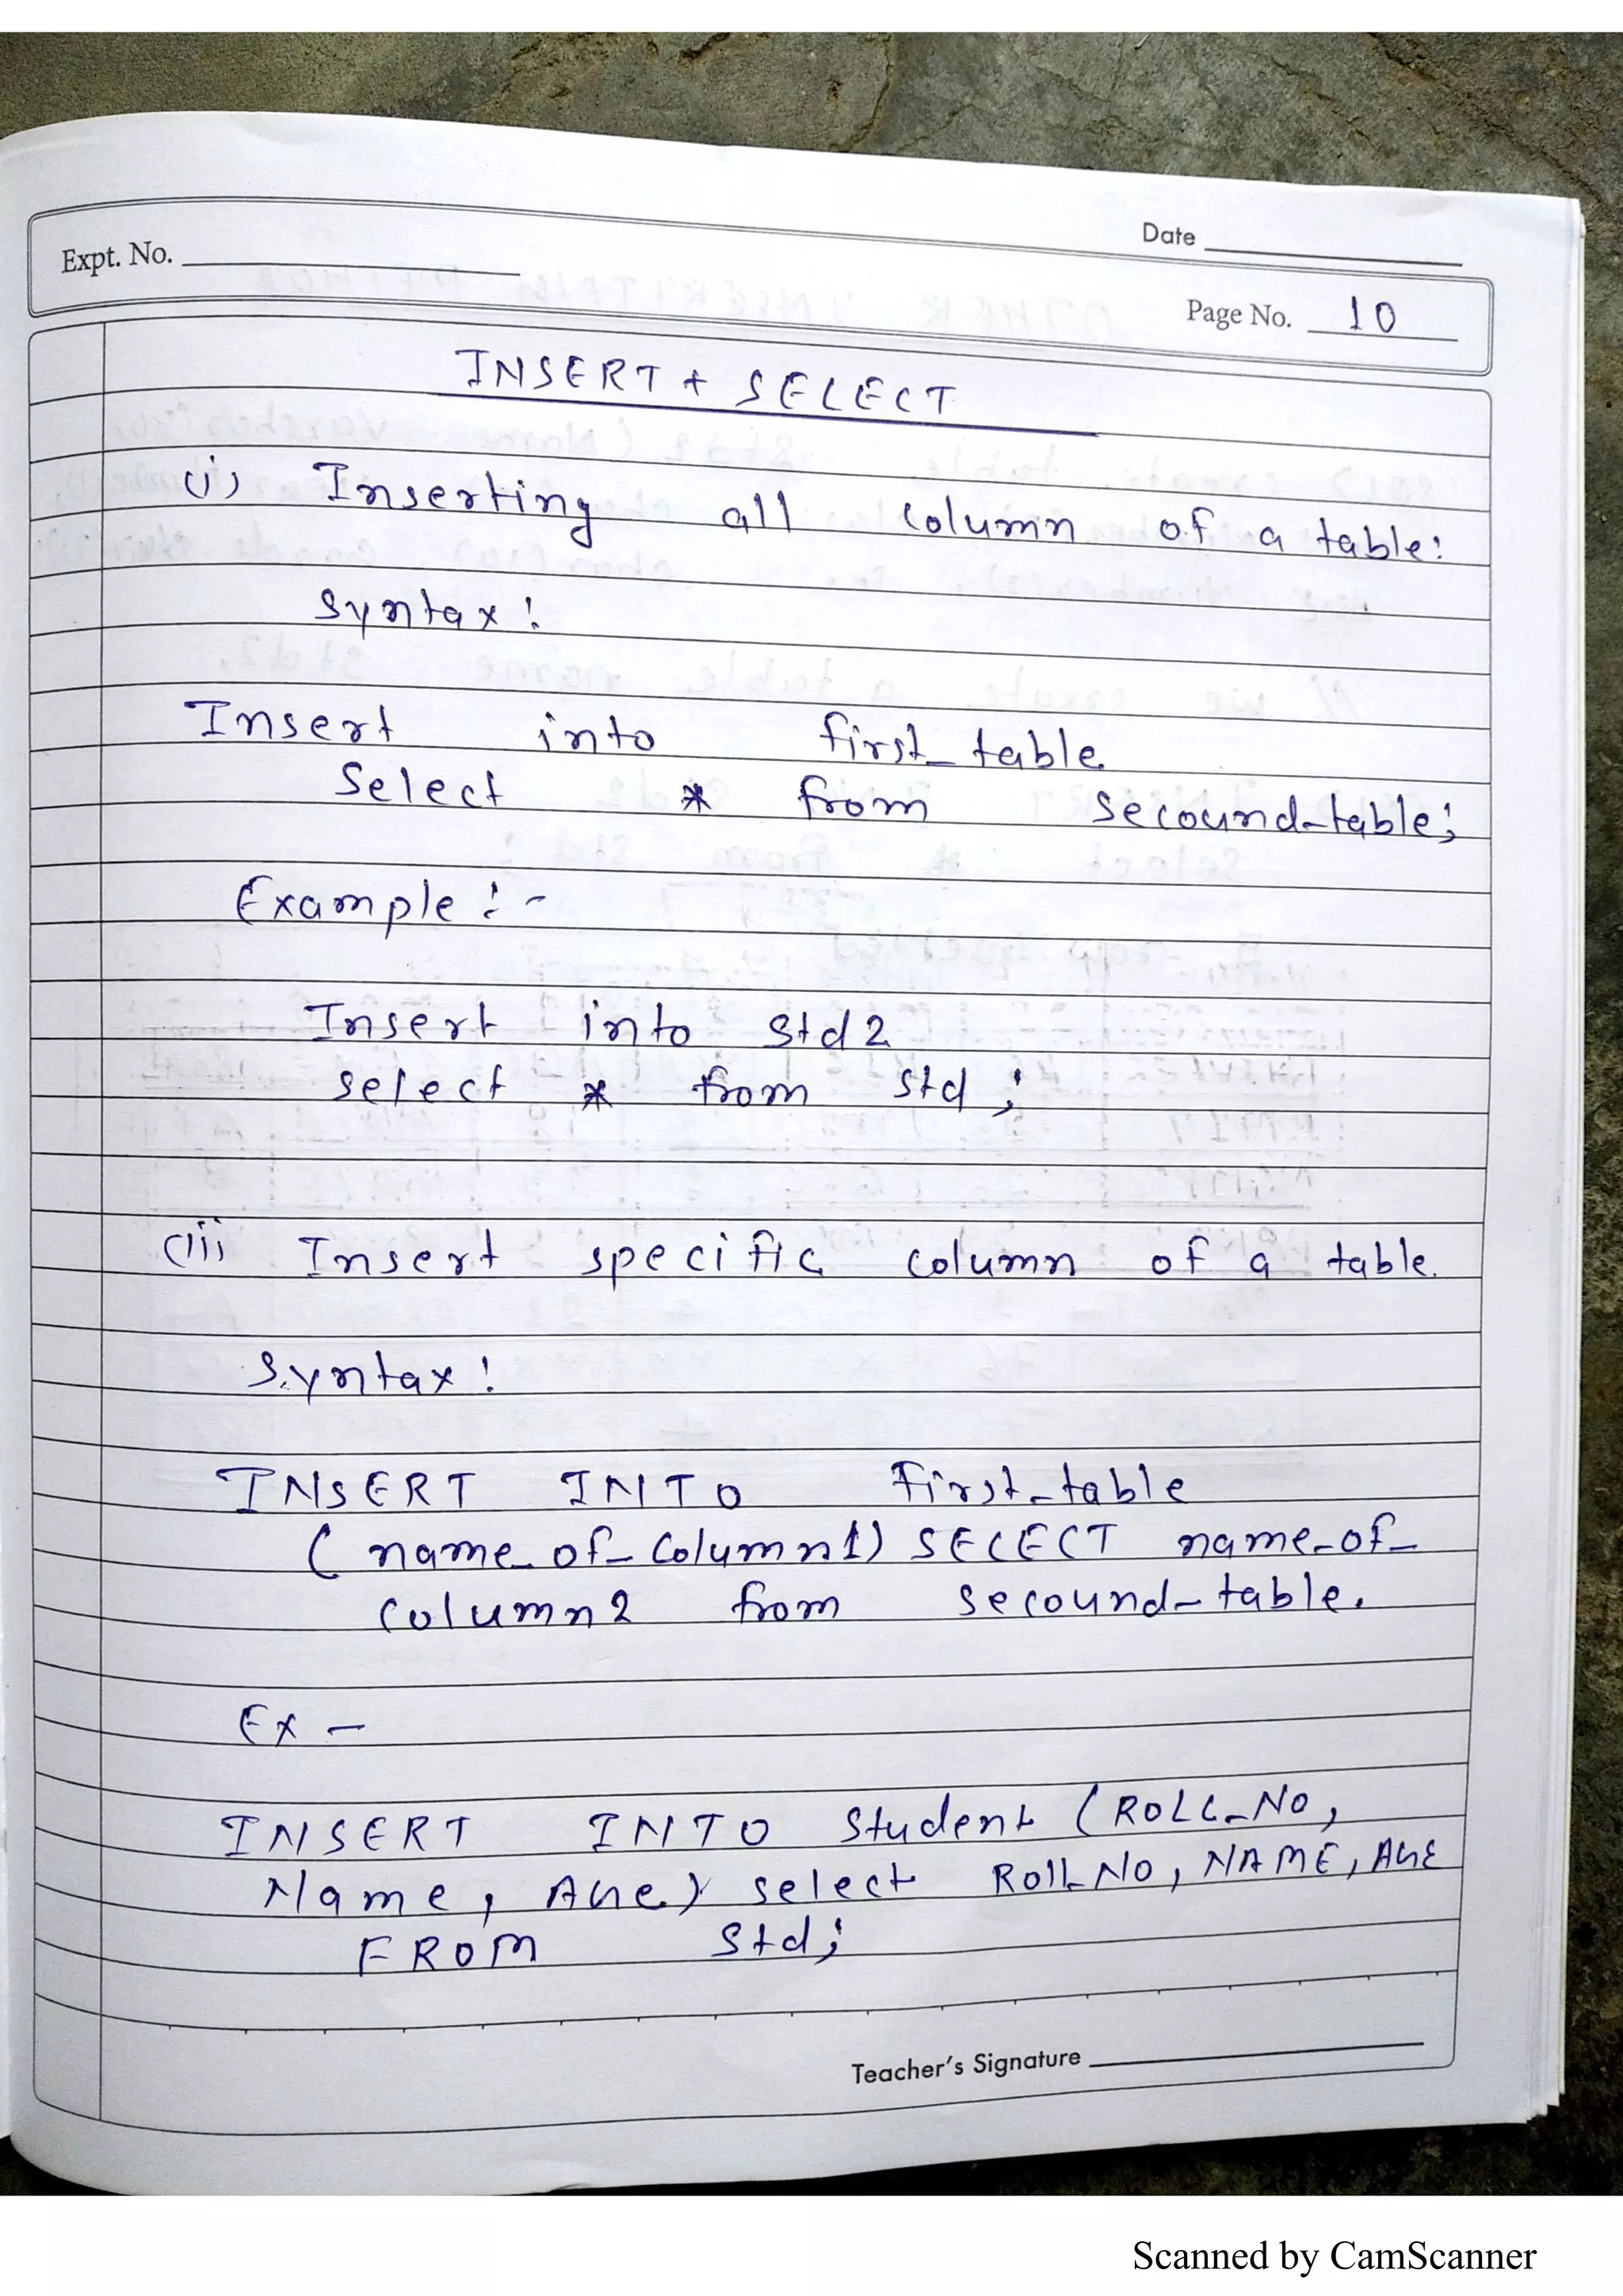 Date
Expt. No.
Page No. 10
INSERT + SELECT
(i) Inserting all column of a table:
Syntax:
Insert into first_table
Select * from secound_table;
Example:-
Insert into Std2
select * from Std;
(ii) Insert specific column of a table.
Syntax:
INSERT INTO First_table
(name_of_Column1) SELECT name_of_
column2 from secound_table.
Ex -
INSERT INTO Student (ROLL_No,
Name, AGe) select Roll_No, NAME, AGE
FROM Std;
Teacher's Signature
Scanned by CamScanner